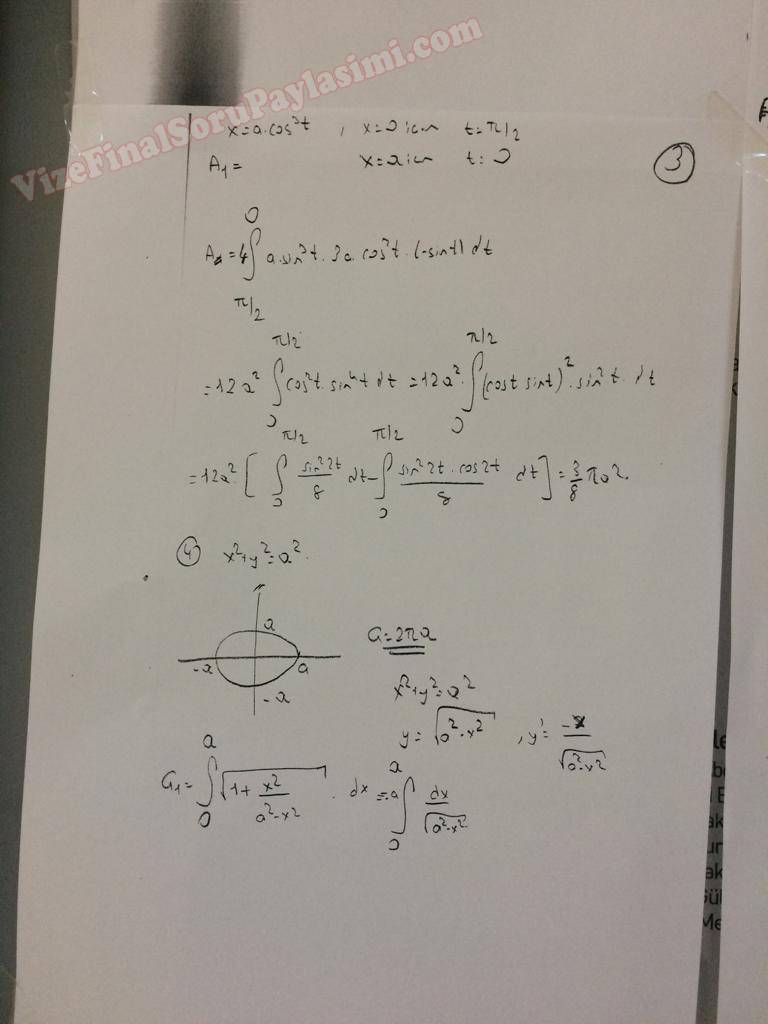 VizeFinalSoruPaylasimi.com
x=a.cos³t , x=0 için t=π/2
A₁= x=a için t=0
③
A=4∫_{π/2}^{0} a.sin³t.3a.cos²t.(-sint) dt
=12a² ∫_{0}^{π/2} cos²t.sin⁴t dt =12a².∫_{0}^{π/2} (cost sint)².sin²t.dt
=12a².[∫_{0}^{π/2} sin²2t/8 dt-∫_{0}^{π/2} sin²2t.cos2t/8 dt]=3/8 πa².
④ x²+y²=a².
a
G=2πa
-a a
-a
x²+y²=a²
y=√(a²-x²) , y'=-x/√(a²-x²)
G₁=∫_{0}^{a} √(1+x²/(a²-x²)).dx =a∫_{0}^{a} dx/√(a²-x²)